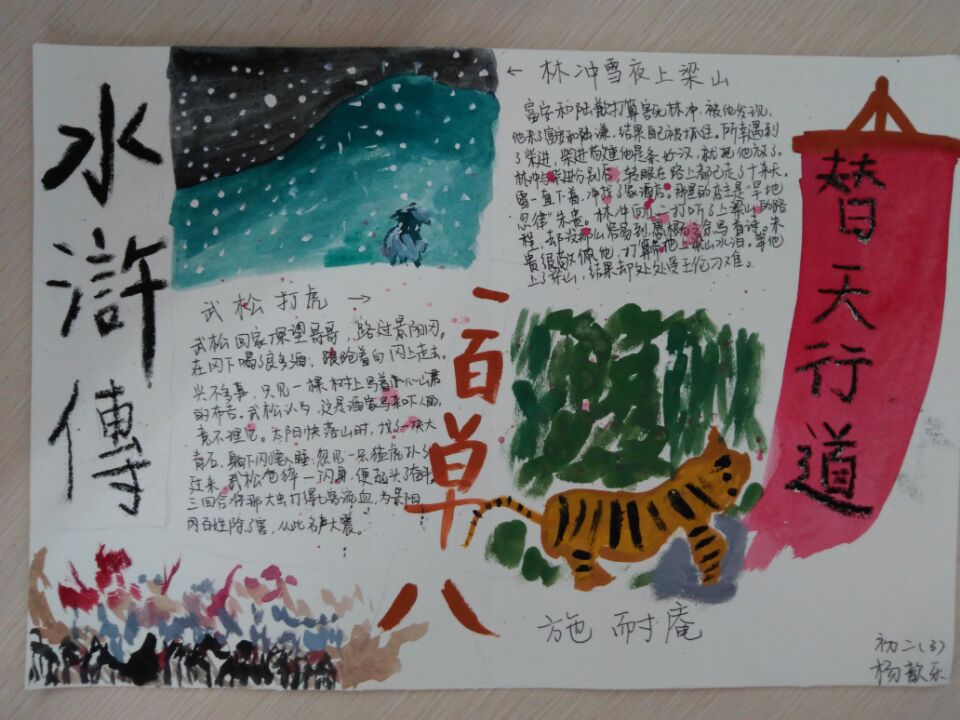 水滸傳
← 林冲雪夜上梁山
富安和陆谦打算害死林冲,被他发现,
他杀了富安和陆谦,结果自己被抓住。所幸遇到
了柴进,柴进
他是条好汉,就把他放了。
林冲与柴进分别后,转眼在路上都已走了十来天。
雪一直下着,冲找了家酒店。那里的店主是“旱地
忽律”朱贵。林冲向
打听了上梁山的路
程,却没那么容易到,
写着诗。朱
贵很敬佩他,打算带他上梁山水泊。等他
上了梁山,结果却处处受王伦刁难。
替天行道
武松打虎 →
武松回家探望哥哥,路过景阳冈。
在冈下喝了良多酒,踉跄着向冈上走去。
兴不多事,只见一棵树上写着
的布告。武松认为,这是酒家写来吓人的,
竟不理它。太阳快落山时,找了一块大
青石,躺下闪要入睡,忽见一只猛虎扑了
过来,武松
一闪身,便
三回合
那大虫打得七窍流血,为景阳
冈百姓除了害,从此名声大震。
一百单八
施耐庵
初二(3)
杨歆乐